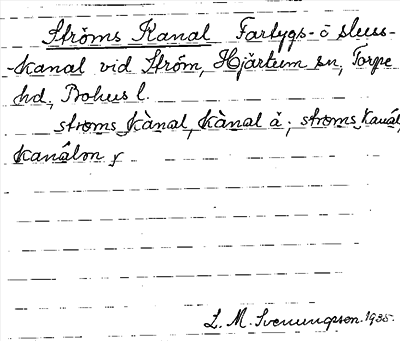 Ströms Kanal Fartygs- o sluss-
-kanal vid Ström, Hjärtum sn, Torpe
hd, Bohus l.
stroms kànal, kànal à; stroms kanál,
kanálon y
L. M. Svenungsson. 1935.